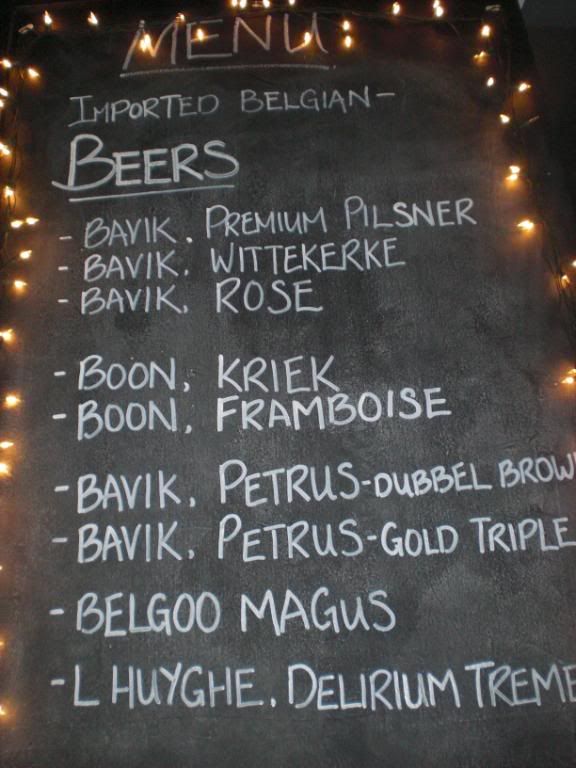 MENU
IMPORTED BELGIAN-
BEERS
- BAVIK. PREMIUM PILSNER
- BAVIK. WITTEKERKE
- BAVIK. ROSE
- BOON, KRIEK
- BOON, FRAMBOISE
- BAVIK. PETRUS-DUBBEL BROW
- BAVIK. PETRUS-GOLD TRIPLE
- BELGOO MAGUS
- L HUYGHE. DELIRIUM TREME